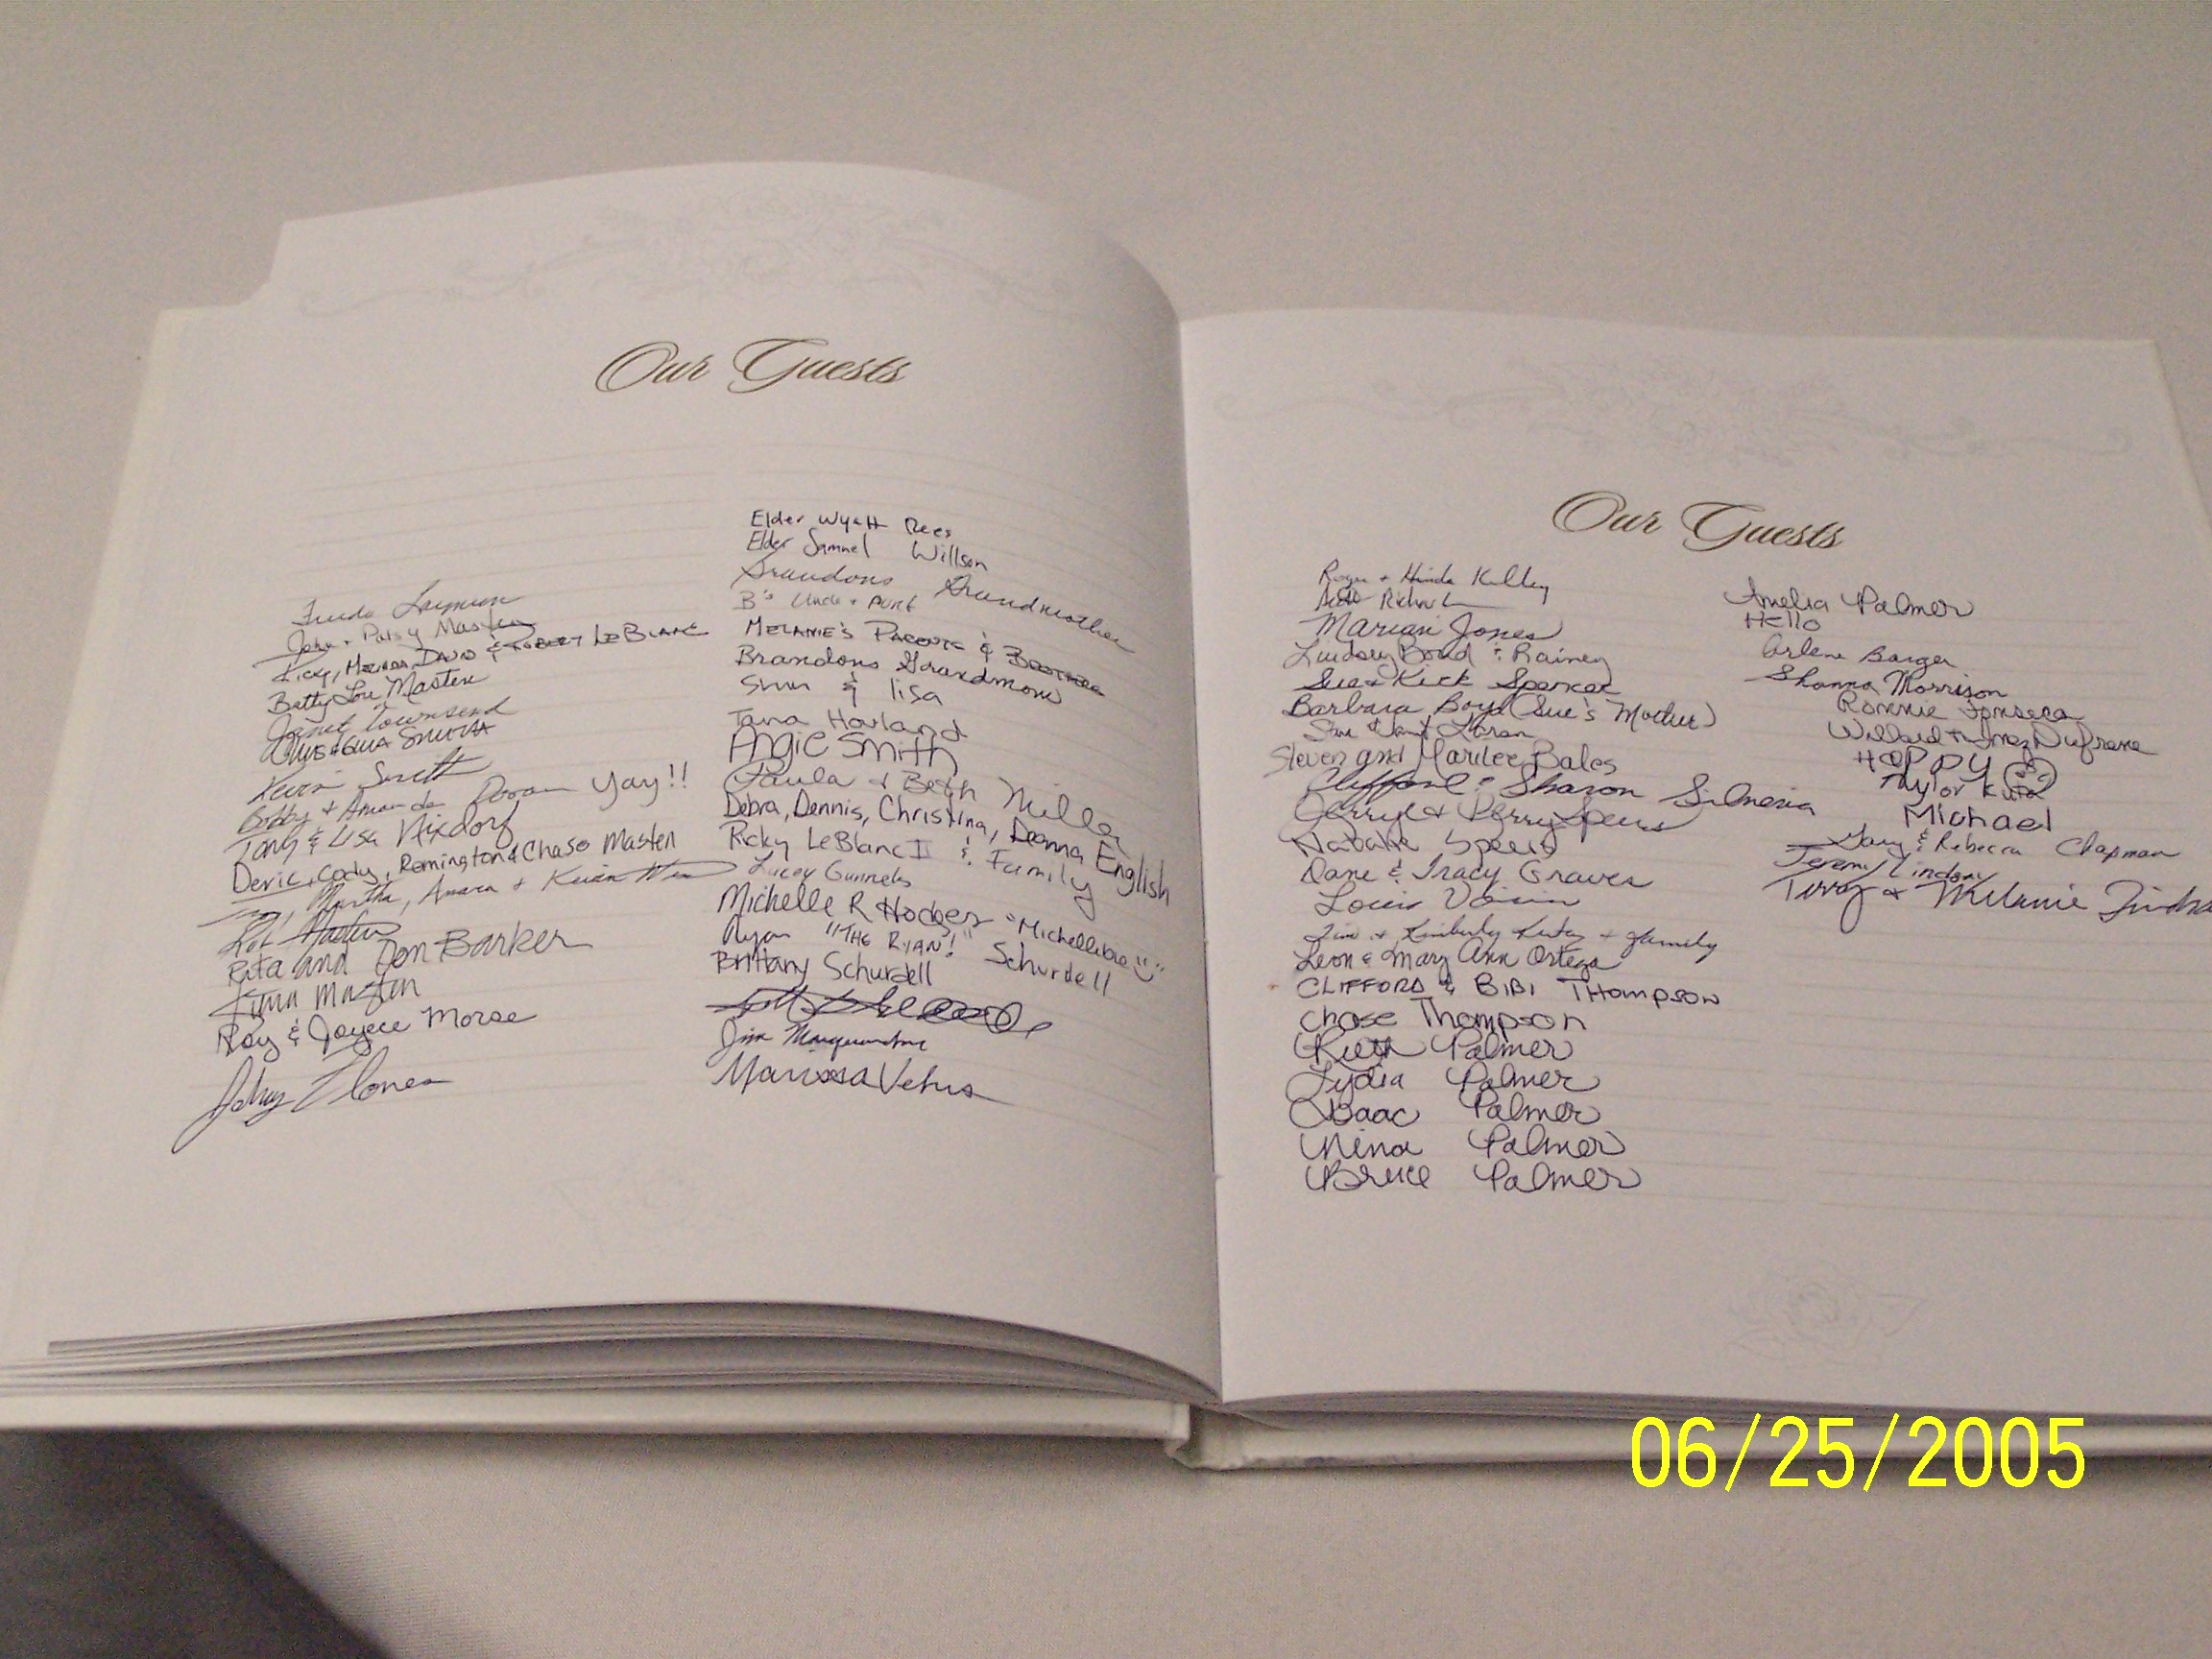 Our Guests
John & Patsy Masten
Ricky, Melinda, David & Robert LeBlanc
Betty Lou Masten
Janet Townsend
Kevin Smith
Bobby & Amanda Doran Yay!!
Tony & Lisa Nixdorf
Deric, Cody, Remington & Chase Masten
Martha, Amara + Kevin
Rob Masten
Rita and Don Barker
Masten
Roy & Joyce Morse
Jones
Elder Wyatt Rees
Elder Samuel Willson
Brandons Grandmother
B's Uncle + Aunt
Melanie's Parents & Brother
Brandons Grandmom
& lisa
Tana Howland
Angie Smith
Paula & Beth Miller
Debra, Dennis, Christina, Deanna English
Ricky LeBlanc II & Family
Lucy Gunnels
Michelle R Hodges "Michellibee"
Ryan "THE RYAN!" Schurdell
Brittany Schurdell
Jim
Marissa
Our Guests
Roger + Hinda Kelley
Marian Jones
Lindsey Bond & Rainey
Sue & Rick Spencer
Barbara Boyd (Sue's Mother)
Steven and Marilee Bales
Clifford & Sharon
Jerryl & Perry Speers
Natalie Speers
Dane & Tracy Graves
Louis
Tim & Kimberly Kuta + family
Leon & Mary Ann Ortega
CLIFFORD & BIBI THOMPSON
Chase Thompson
Ruth Palmer
Lydia Palmer
Isaac Palmer
Nina Palmer
Bruce Palmer
Amelia Palmer
Hello
Arlene Barger
Shanna Morrison
Ronnie Fonseca
Willard & Inez Dufrene
HAPPY
Taylor Kuta
Michael
Gary & Rebecca Chapman
Jeremy Lindsay
Terry & Melanie
06/25/2005